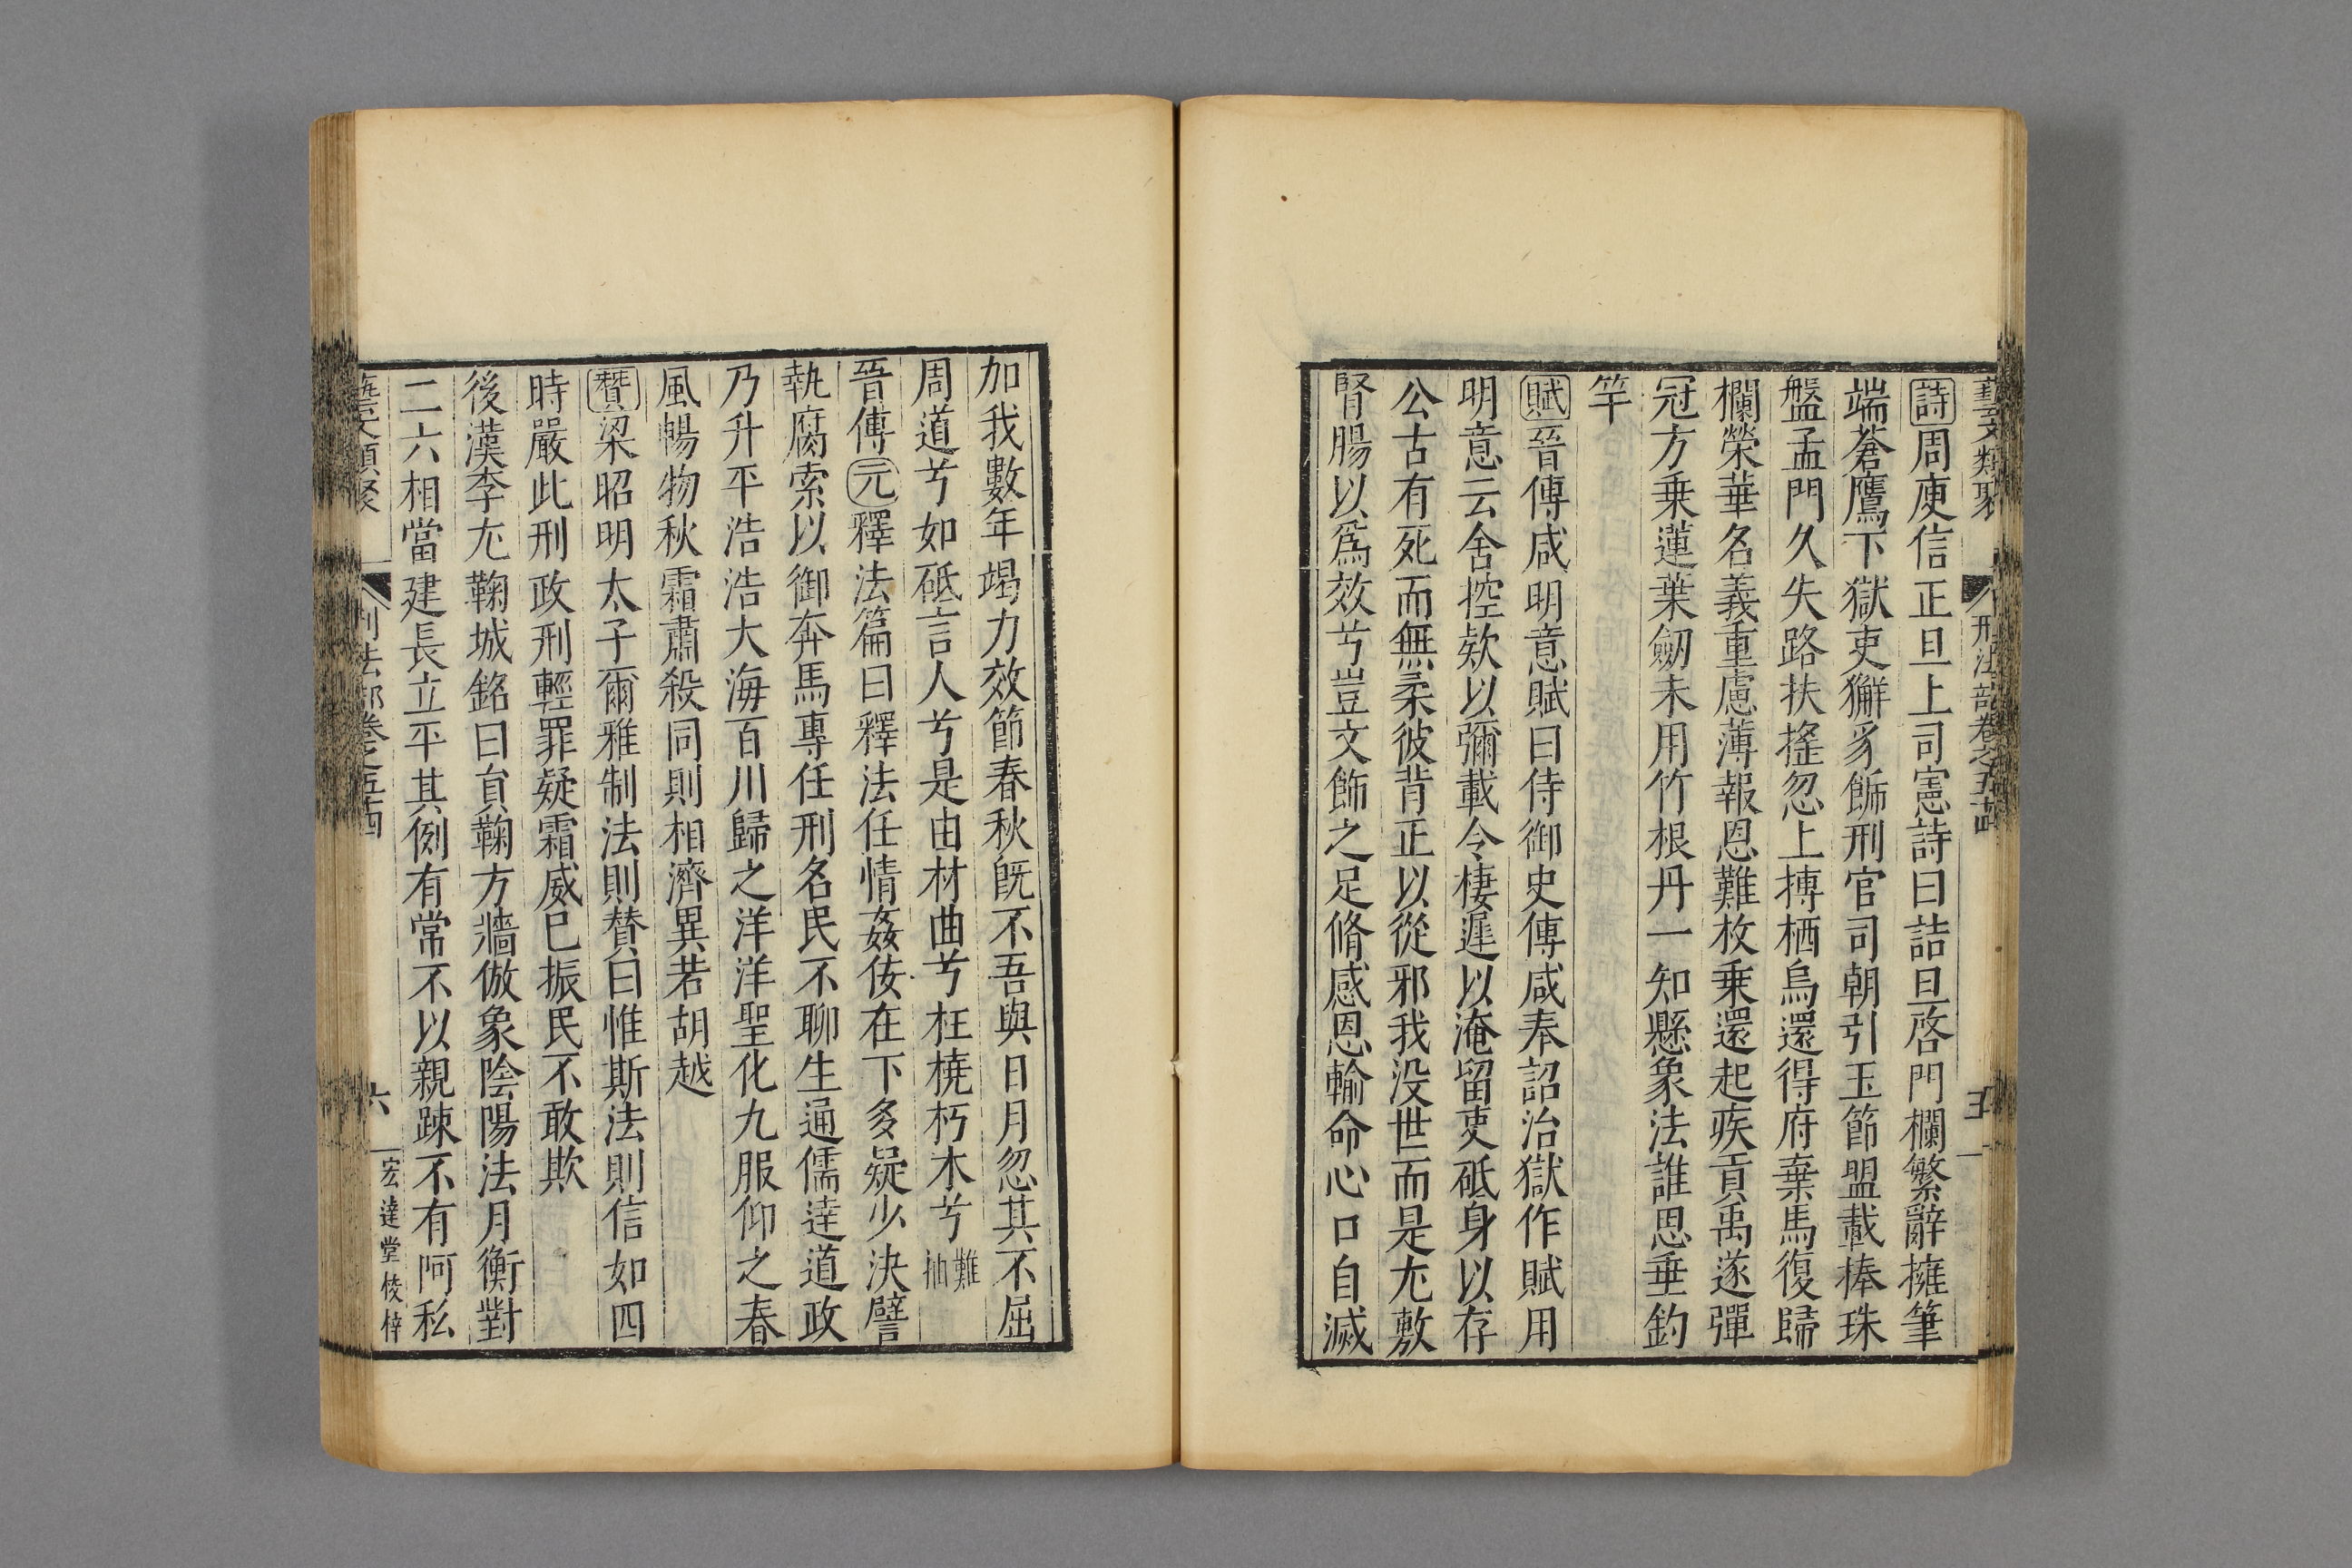 藝文類聚 刑法部卷之五十四 五
詩周庾信正旦上司憲詩曰詰旦啓門欄繁辭擁筆
端蒼鷹下獄吏獬豸飾刑官司朝引玉節盟載捧珠
盤孟門久失路扶搖忽上搏栖烏還得府棄馬復歸
欄榮華名義重慮薄報恩難枚乗還起疾貢禹遂彈
冠方乗蓮葉劒未用竹根丹一知懸象法誰思垂釣
竿
賦晉傅咸明意賦曰侍御史傅咸奉詔治獄作賦用
明意云舍控欵以彌載令棲遲以淹留吏砥身以存
公古有死而無柔彼背正以從邪我没世而是尤敷
腎腸以爲效兮豈文飾之足脩感恩輸命心口自滅
加我數年竭力效節春秋既不吾與日月忽其不屈
周道兮如砥言人兮是由材曲兮枉橈朽木兮難抽
晉傅元釋法篇曰釋法任情姦佞在下多疑少決譬
執腐索以御奔馬專任刑名民不聊生通儒達道政
乃升平浩浩大海百川歸之洋洋聖化九服仰之春
風暢物秋霜肅殺同則相濟異若胡越
贊梁昭明太子爾雅制法則贊曰惟斯法則信如四
時嚴此刑政刑輕罪疑霜威已振民不敢欺
後漢李尤鞠城銘曰員鞠方牆倣象陰陽法月衡對
二六相當建長立平其例有常不以親踈不有阿私
藝文類聚 刑法部卷之五十四 六 宏達堂梓